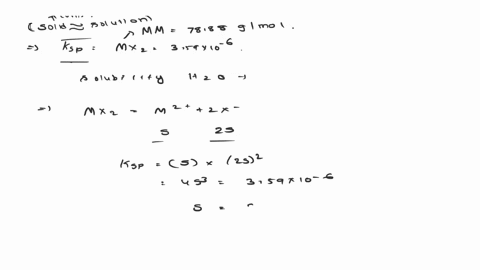 (Sold ≈ solution)
MM = 78.88 g/mol.
=> Ksp = MX2 = 3.59x10^-6.
Solubility H2O →
=> MX2 = M^2+ + 2x^-
S 2S
Ksp = (S) x (2S)^2
= 4S^3 = 3.59x10^-6
S =